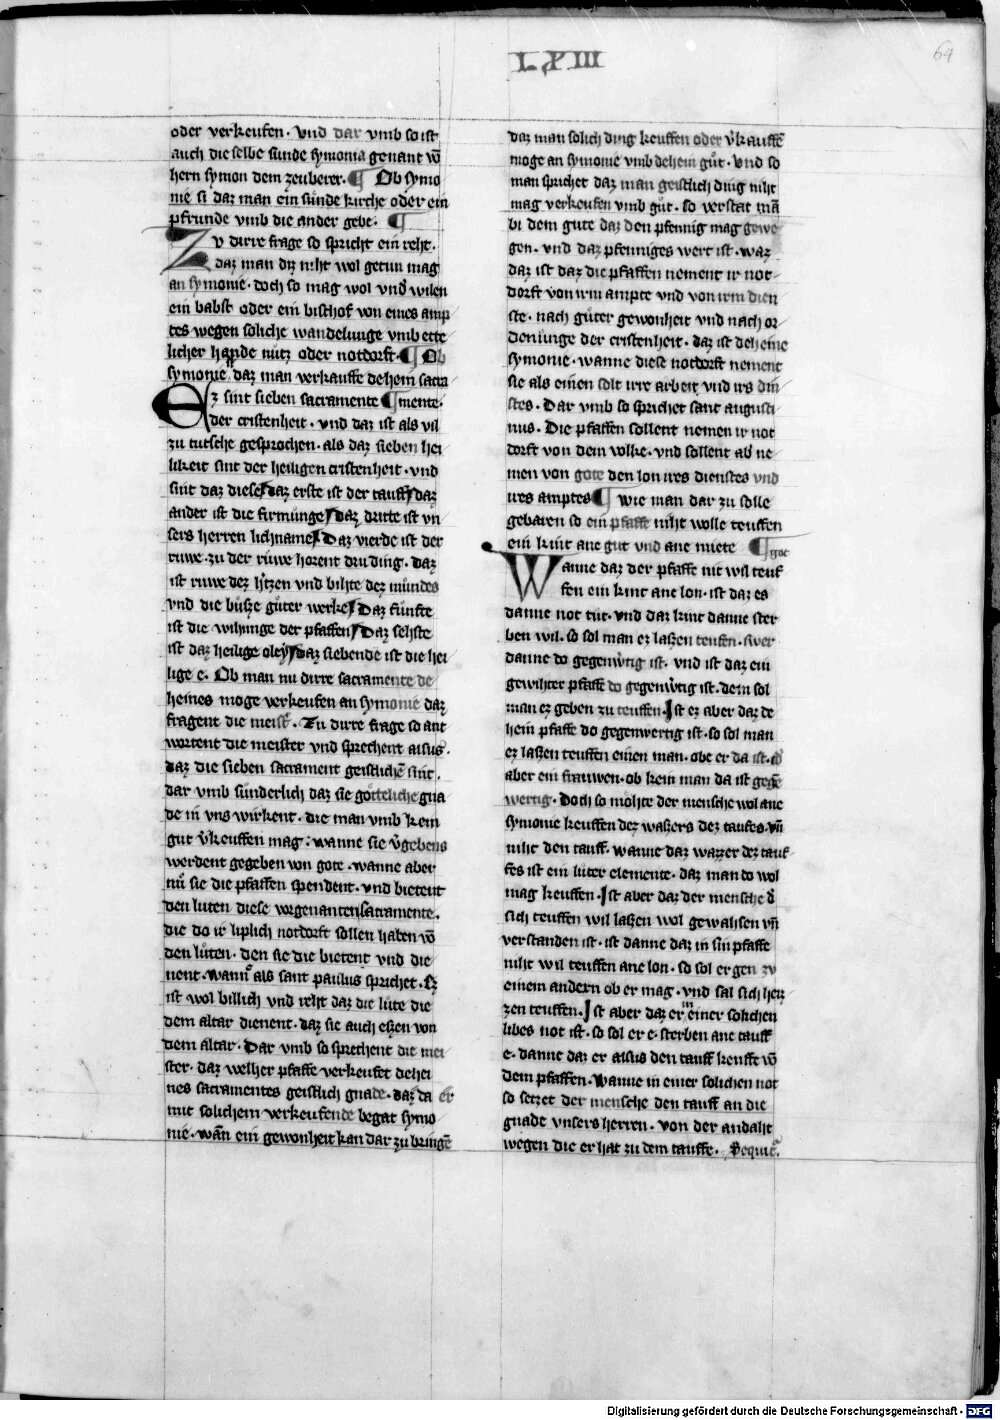 LXIII
64
oder verkeufen. vnd dar vmb so ist
auch die selbe sunde symonia genant vō
hern symon dem zeuberer. ¶ Ob symo
nie si daz man ein sunde kirche oder ein
pfrunde vmb die ander gebe. ¶
Zv dirre frage so spricht ein reht.
daz man diz niht wol getun mag
an symonie. doch so mag wol vnd wilen
ein babst oder ein bischof von eines amp
tes wegen soliche wandelunge vmb ette
licher hande nutz oder notdorft. ¶ Ob
symonie daz man verkauffe dehein sacra
Ez sint sieben sacramente ¶ mente.
der cristenheit. vnd daz ist als vil
zu tutsche gesprochen. als daz sieben hei
likeit sint der heiligen cristenheit. vnd
sint daz diese daz erste ist der tauff daz
ander ist die firmunge Daz dritte ist vn
sers herren lichname Daz vierde ist der
ruwe. zu der ruwe horent dru ding. daz
ist ruwe dez h̄tzen vnd bihte dez mundes
vnd die busze guter werke Daz funfte
ist die wihunge der pfaffen Daz sehste
ist daz heilige oley daz siebende ist die hei
lige e. Ob man nu dirre sacramente de
heines moge verkeufen an symonie daz
fragent die meist̄. Zu dirre frage so ant
wortent die meister vnd sprechent alsus.
daz die sieben sacrament geistlichē sint.
dar vmb sunderlich daz sie gotteliche gna
de in vns wirkent. die man vmb kein
gut v̄keuffen mag. wanne sie v̄gebens
werdent gegeben von gote. wanne aber
nu sie die pfaffen spendent. vnd bietent
den luten diese vorgenanten sacramente.
die do ir liplich notdorft sollen haben vō
den luten. den sie die bietent vnd die
nent. wann als sant paulus sprichet. Ez
ist wol billich vnd reht daz die lute die
dem altar dienent. daz sie auch eszen von
dem altar. Dar vmb so sprechent die mei
ster. daz welher pfaffe verkeufet dehei
nes sacramentes geistlich gnade. daz da er
mit solichem verkeufende begat symo
nie. wan̄ ein gewonheit kan dar zu bringē
daz man solich ding keuffen oder v̄kauffē
moge an symonie vmb dehein gut. vnd so
man sprichet daz man geistlich ding niht
mag verkeufen vmb gut. so verstat mā
bi dem gute daz den pfennig mag gewe
gen. vnd daz pfenniges wert ist. waz
daz ist daz die pfaffen nement ir not
dorft von irm ampte vnd von irm dien
ste. nach guter gewonheit vnd nach or
denunge der cristenheit. daz ist deheine
symonie. wanne diese notdorft nement
sie als einen solt irre arbeit vnd irs din
stes. Dar vmb so sprichet sant augusti
nus. Die pfaffen sollent nemen ir not
dorft von dem volke. vnd sollent ab ne
men von gote den lon ires dienstes vnd
ires amptes ¶ wie man dar zu solle
gebaren so ein pfaffe niht wolle teuffen
ein kint ane gut vnd ane miete ¶ got
Wanne daz der pfaffe nit wil teuf
fen ein kint ane lon. ist daz es
danne not tut. vnd daz kint danne ster
ben wil. so sol man ez laszen teufen. swer
danne do gegenw̄tig ist. vnd ist daz ein
gewihter pfaffe do gegenw̄tig ist. dem sol
man ez geben zu teuffen. Ist ez aber daz de
hein pfaffe do gegenwertig ist. so sol man
ez laszen teuffen einen man. obe er da ist.
aber ein frauwen. ob kein man da ist gegē
wertig. Doch so mohte der mensche wol ane
symonie keuffen dez waszers dez taufes. vn̄
niht den tauff. wanne daz wazzer dez tauf
fes ist ein luter elemente. daz man do wol
mag keuffen. Ist aber daz der mensche d̄
sich teuffen wil laszen wol gewahsen vn̄
verstanden ist. ist danne daz in sin pfaffe
niht wil teuffen ane lon. so sol er gen zv
einem andern ob er mag. vnd sal sich heiz
zen teuffen. Ist aber daz er in einer solichen
libes not ist. so sol er e. sterben ane tauff
e. danne daz er alsus den tauff keuffe vō
dem pfaffen. wanne in einer solichen not
so setzet der mensche den tauff an die
gnade vnsers herren. von der andaht
wegen die er hat zu dem tauffe. Sequit̄.
Digitalisierung gefördert durch die Deutsche Forschungsgemeinschaft - DFG